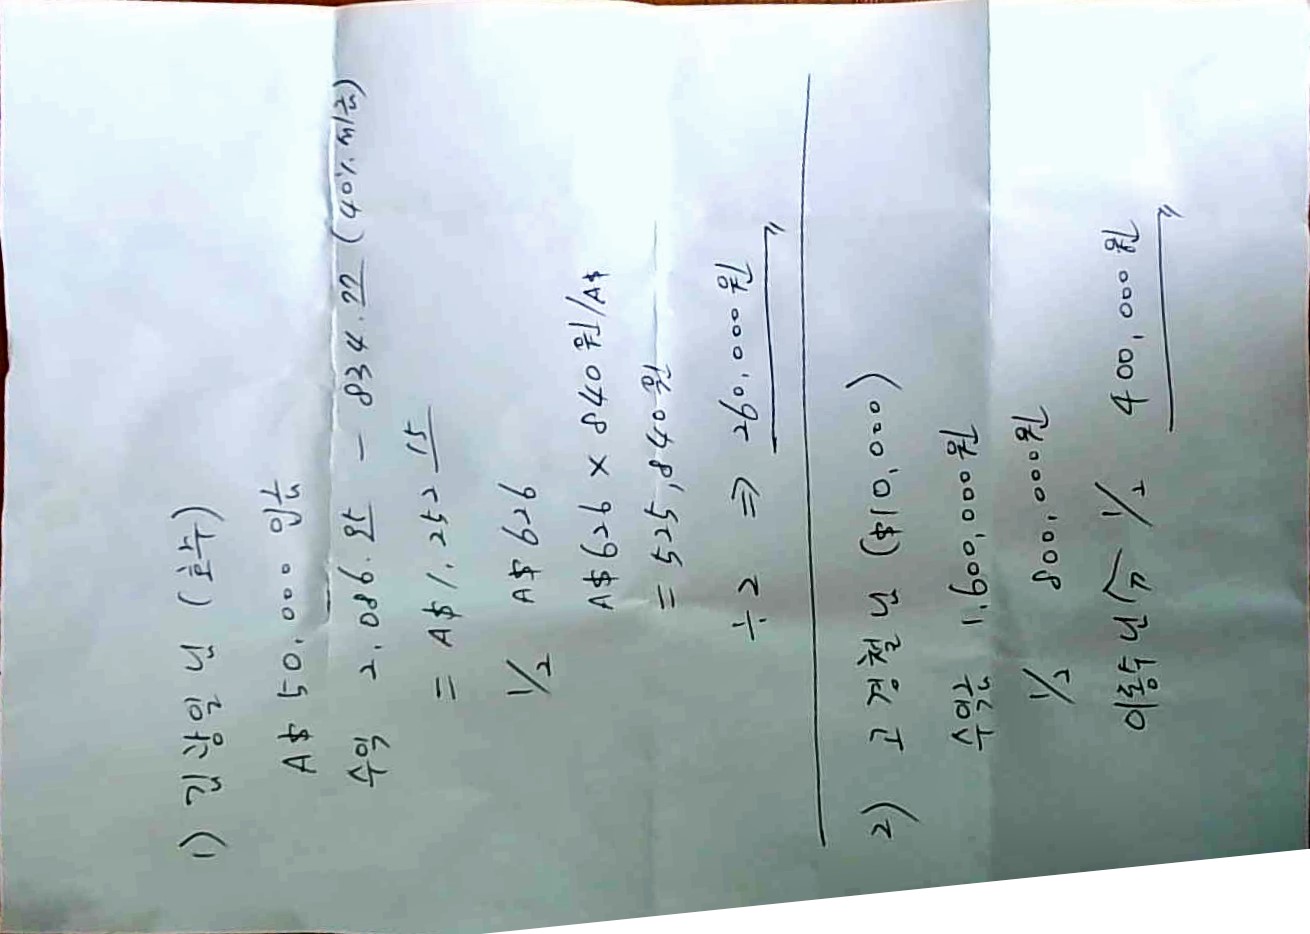 1) 김광일 님 (호수)
A$ 50,000 입금
수익 2,086.95 - 834.77 (40% 세금)
= A$ 1,252 15
1/2 A$ 626
A$ 626 × 840 원/A$
= 525,840 원
÷2 ⇒ 260,000 원
2) 고경철 님 ($10,000)
수익금 1,600,000 원
1/2 800,000원
이동수 님 分 1/2 400,000 원